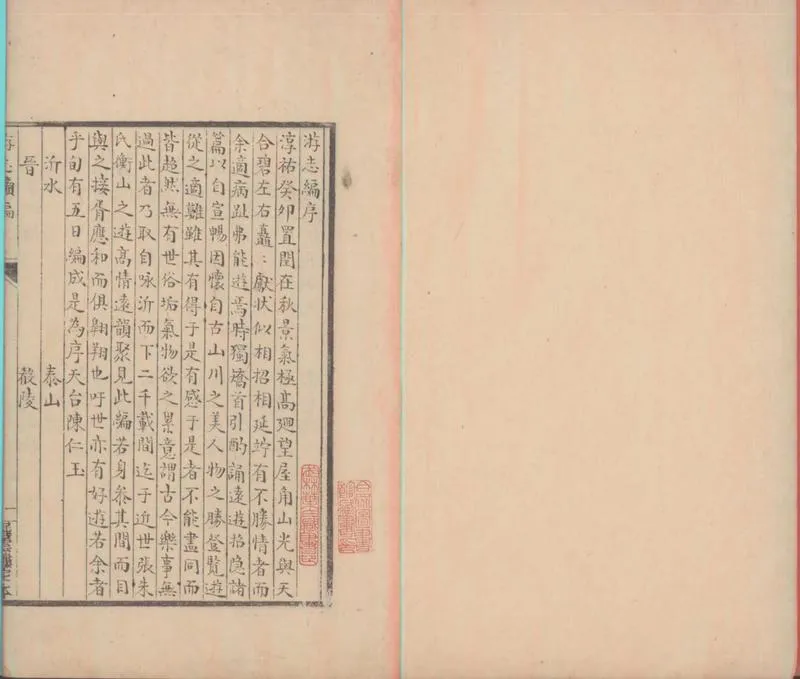 游志編序
淳祐癸卯置閏在秋景氣極高迥望屋角山光與天
合碧左右矗〻獻狀似相招相延竚有不勝情者而
余適病趾弗能遊焉時獨搔首引酌誦遠遊招隐諸
篇以自宣暢因懷自古山川之美人物之勝登覽遊
從之適雖其有得于是有感于是者不能盡同而
皆超然無有世俗垢氣物欲之累意謂古今樂事無
過此者乃取自咏沂而下二千載間迄于近世張朱
氏衡山之遊髙情遠韻聚見此編若身叅其間而目
與之接胥應和而俱翱翔也吁世亦有好遊若余者
乎旬有五日編成是為序天台陳仁玉
沂水 泰山
晉 殽陵
游志續編